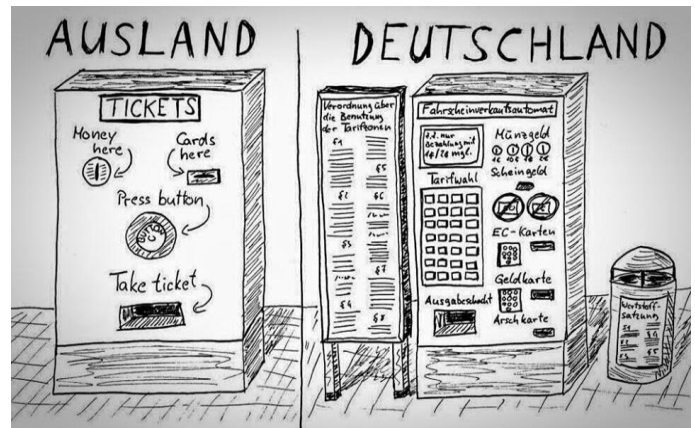 AUSLAND
TICKETS
Money
here
Cards
here
Press button
Take ticket
DEUTSCHLAND
Verordnung über
die Benutzung
der Tarifzonen
§1
§2
§3
§4
§5
§6
§7
§8
Fahrscheinverkaufsautomat
z.Z. nur
Bezahlung mit
1¢/2¢ mgl.
Tarifwahl
Ausgabeschacht
Münzgeld
Scheingeld
EC-Karten
Geldkarte
Arschkarte
Wertstoff-
satzung